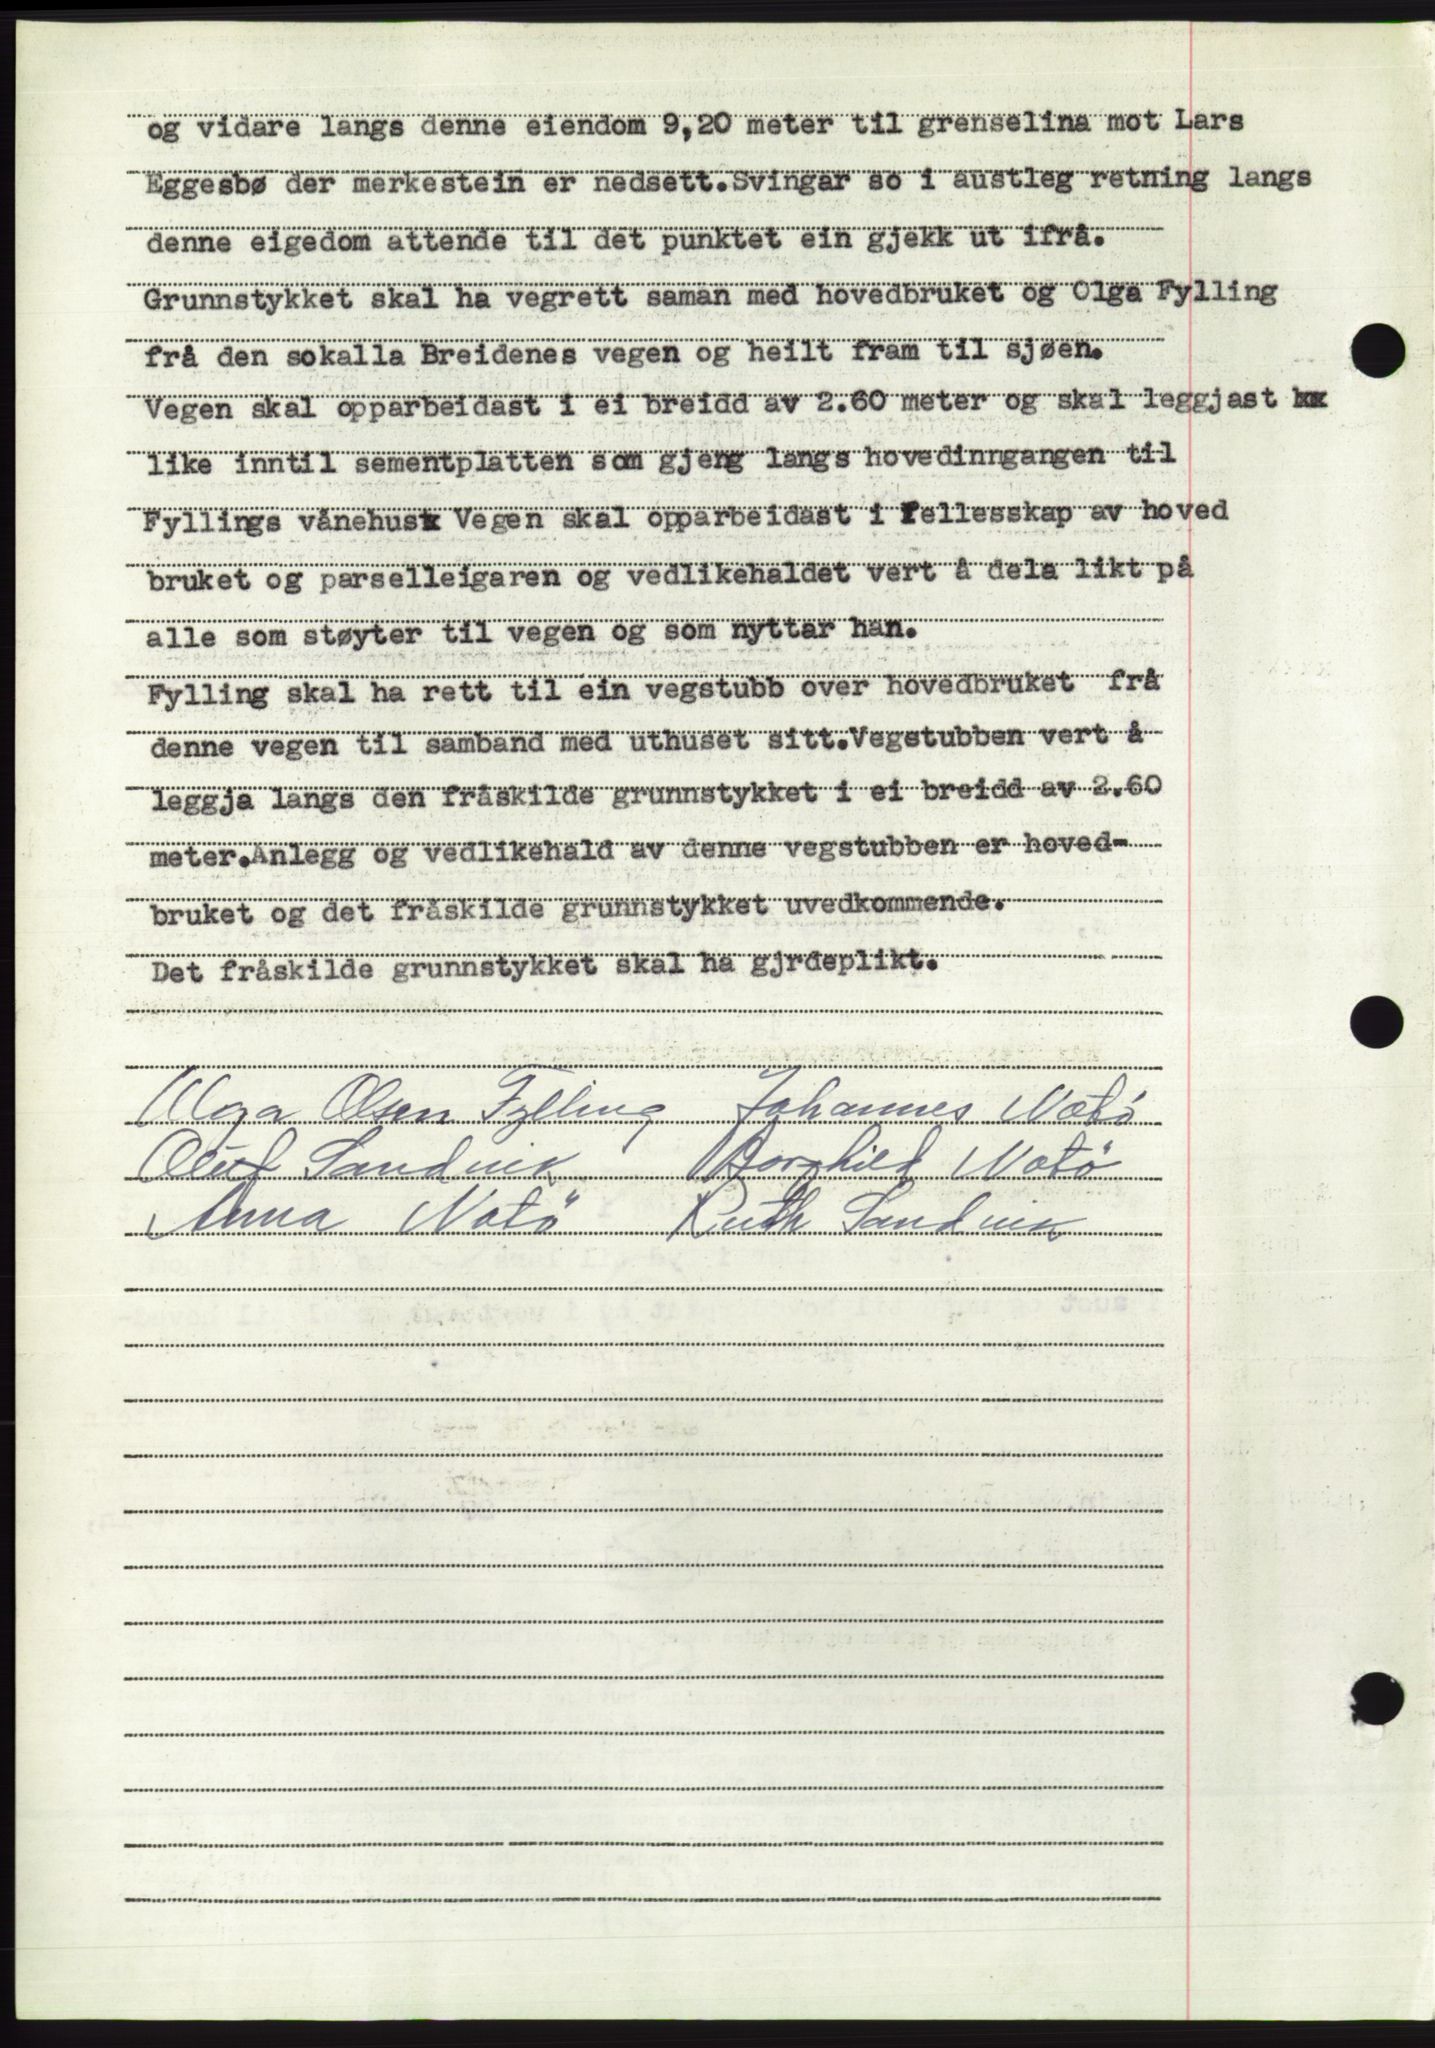 og vidare langs denne eiendom 9,20 meter til grenselina mot Lars
Eggesbø der merkestein er nedsett.Svingar so i austleg retning langs
denne eigedom attende til det punktet ein gjekk ut ifrå.
Grunnstykket skal ha vegrett saman med hovedbruket og Olga Fylling
frå den sokalla Breidenes vegen og heilt fram til sjøen.
Vegen skal opparbeidast i ei breidd av 2.60 meter og skal leggjast
like inntil sementplatten som gjeng langs hovedinngangen til
Fyllings vånehus Vegen skal opparbeidast i fellesskap av hoved
bruket og parselleigaren og vedlikehaldet vert å dela likt på
alle som støyter til vegen og som nyttar han.
Fylling skal ha rett til ein vegstubb over hovedbruket frå
denne vegen til samband med uthuset sitt.Vegstubben vert å
leggja langs den fråskilde grunnstykket i ei breidd av 2.60
meter.Anlegg og vedlikehald av denne vegstubben er hoved-
bruket og det fråskilde grunnstykket uvedkommende.
Det fråskilde grunnstykket skal ha gjrdeplikt.
Olga Olsen Fylling Johannes Notö
Oluf Sandvik Borghild Notö
Anna Notö Ruth Sandvik